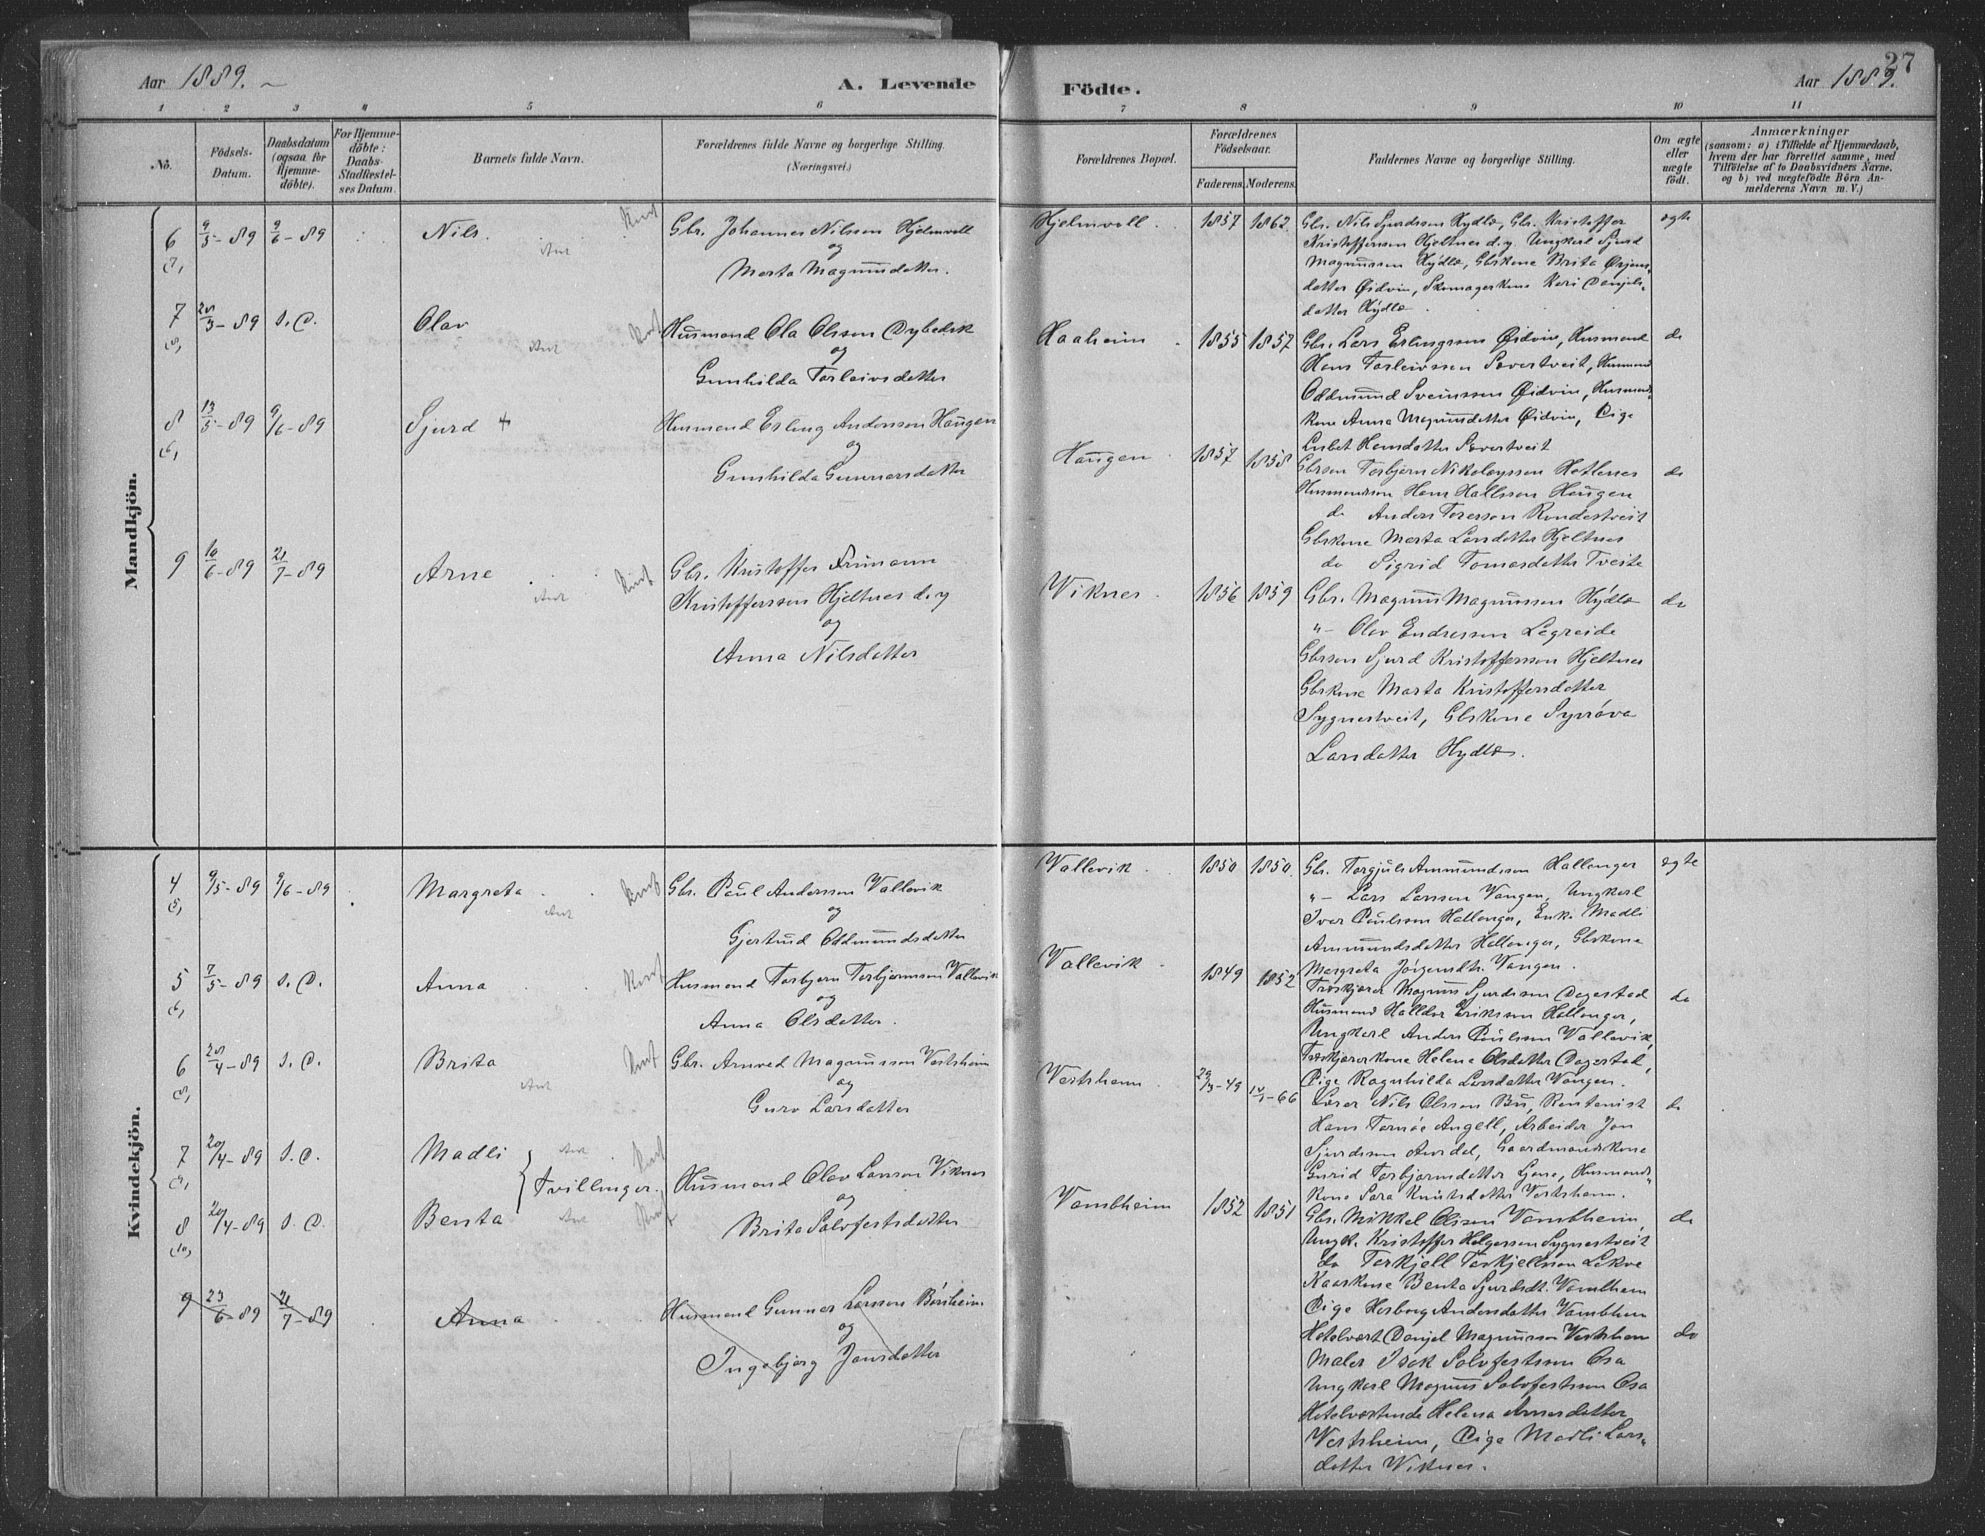 Aar 1889.
A. Levende
Födte.
Aar 1889.
27
1 2 3 4 5 6 7 8 9 10 11
No.
Födsels-
Datum.
Daabsdatum
(ogsaa for
Hjemme-
döbte).
For Hjemme-
döbte:
Daabs-
Stadfæstel-
ses Datum.
Barnets fulde Navn.
Forældrenes fulde Navne og borgerlige Stilling.
(Næringsvei.)
Forældrenes Bopæl.
Forældrenes
Födselsaar.
Faderens. Moderens.
Faddernes Navne og borgerlige Stilling.
Om ægte
eller
uægte
födt.
Anmærkninger
(saasom: a) i Tilfælde af Hjemmedaab,
hvem der har forrettet samme, med
Tilföielse af to Daabsvidners Navne.
og b) ved uægtefödte Börn An-
melderens Navn m. V.)
Mandkjön.
6 9/5-89 9/6-89 Nils.
Gbr. Johannes Nilsson Hjelmvoll
og
Marta Magnusdatter.
Hjelmvoll. 1857 1862
Gbr. Nils Sjurdsson Hydle, Gbr. Kristoffer
Kristoffersson Hjeltnes d.y. Ungkarl Sjurd
Magnussen Hydle, Gbskone Brita
datter Øidvin, Skomagerkone Kari Danjels-
datter Hydle
ægte
7 S.D. Olav
Husmand Ola Olsson Dybedsk
og
Gunhilda Torleivsdatter
Haaheim 1855 1857
Gbr. Lars Erlingsson Øidvin, Husmand
Hans Torleivssen Sævertveit, Husmand
Oddmund Sveinssen Øidvin, Husmands-
kone Anna Magnusdatter Øidvin, Pige
Lisbet Hansdatter Sævertveit
do
8 13/5-89 9/6-89 Sjurd +
Husmand Erling Andersson Haugen
og
Gunhilda Gunnarsdatter
Haugen 1857 1858
Gbrson Torbjørn Nikolaysson Hatlenes
Husmandsson Hans Hallsson Haugen
do Anders Toresson Rondestveit
Gbskone Marta Larsdatter Hjeltnes
do Sigrid Tomasdatter Tveite
do
9 10/6-89 21/7-89 Arne
Gbr. Kristoffer Frimann
Kristoffersson Hjeltnes d.y
og
Anna Nilsdatter
Viknes. 1856 1859
Gbr. Magnus Magnussen Hydle
"- Olav Endresson Legreide
Gbrson Sjurd Kristoffersson Hjeltnes
Gbskone Marta Kristoffersdatter
Sygnestveit, Gbskone Synnøva
Larsdatter Hydle.
do
Kvindekjön.
4 9/5-89 9/6-89 Margreta
Gbr. Paul Andersson Vallevik
og
Gjertrud Oddmundsdatter
Vallevik 1850 1850.
Gbr. Torgjuls Ammundsson Hallanger
"- Lars Larsson Vangen, Ungkarl
Ivar Paulsson Hallanger, Enke Madli
Ammundsdatter Hallanger, Gbskone
Margreta Jörgensdtr. Vangen.
ægte
5 7/5-89 S.D. Anna
Husmand Torbjørn Torbjørnsson Vallevik
og
Anna Olsdatter.
Vallevik 1849 1852
Træskjærer Magnus Sjurdsson Dagestad
Husmand Halldor Eriksson Hallanger,
Ungkarl Anders Paulsson Vallevik,
Træskjærerkone Helene Olsdatter Dagestad,
Pige Ragnhilda Larsdatter Vangen.
do
6 S.D. Brita
Gbr. Arnved Magnusson Vestrheim
og
Guro Larsdatter
Vestrheim
Lærer Nils Olsson Bu, Rentenist
Hans Tornöe Angell, Arbeider Jon
Sjurdsson Aurdal, Gaardmandskone
Gurid Torbjørnsdatter Ljone, Husmands-
kone Sara Knutsdatter Vestrheim.
do
7 20/4-89 S.D. Madli
Tvillinger.
8 20/4-89 S.D. Benta
Husmand Olav Larsson Viknes
og
Brita Solvfestsdatter
Vambheim 1852 1851
Gbr. Mikkel Olsson Vambheim,
Ungk. Kristoffer Helgesson Sygnestveit
do Torkjell Torkjellsson Lekve
Kaarkone Benta Sjurdsdt. Vambheim
Pige Herborg Andersdatter Vambheim
do
9 23/6-89 21/7-89 Anna
Husmand Gunnar Larsson Børsheim
og
Ingebjørg Jonsdatter
Hotelvært Danjel Magnusson Vestrheim
Maler Isak Solvfestsson Osa
Ungkarl Magnus Solvfestsson Osa
Hotelværtinde Helena Arnesdatter
Vestrheim, Pige Madli Lars-
datter Viknes.
do